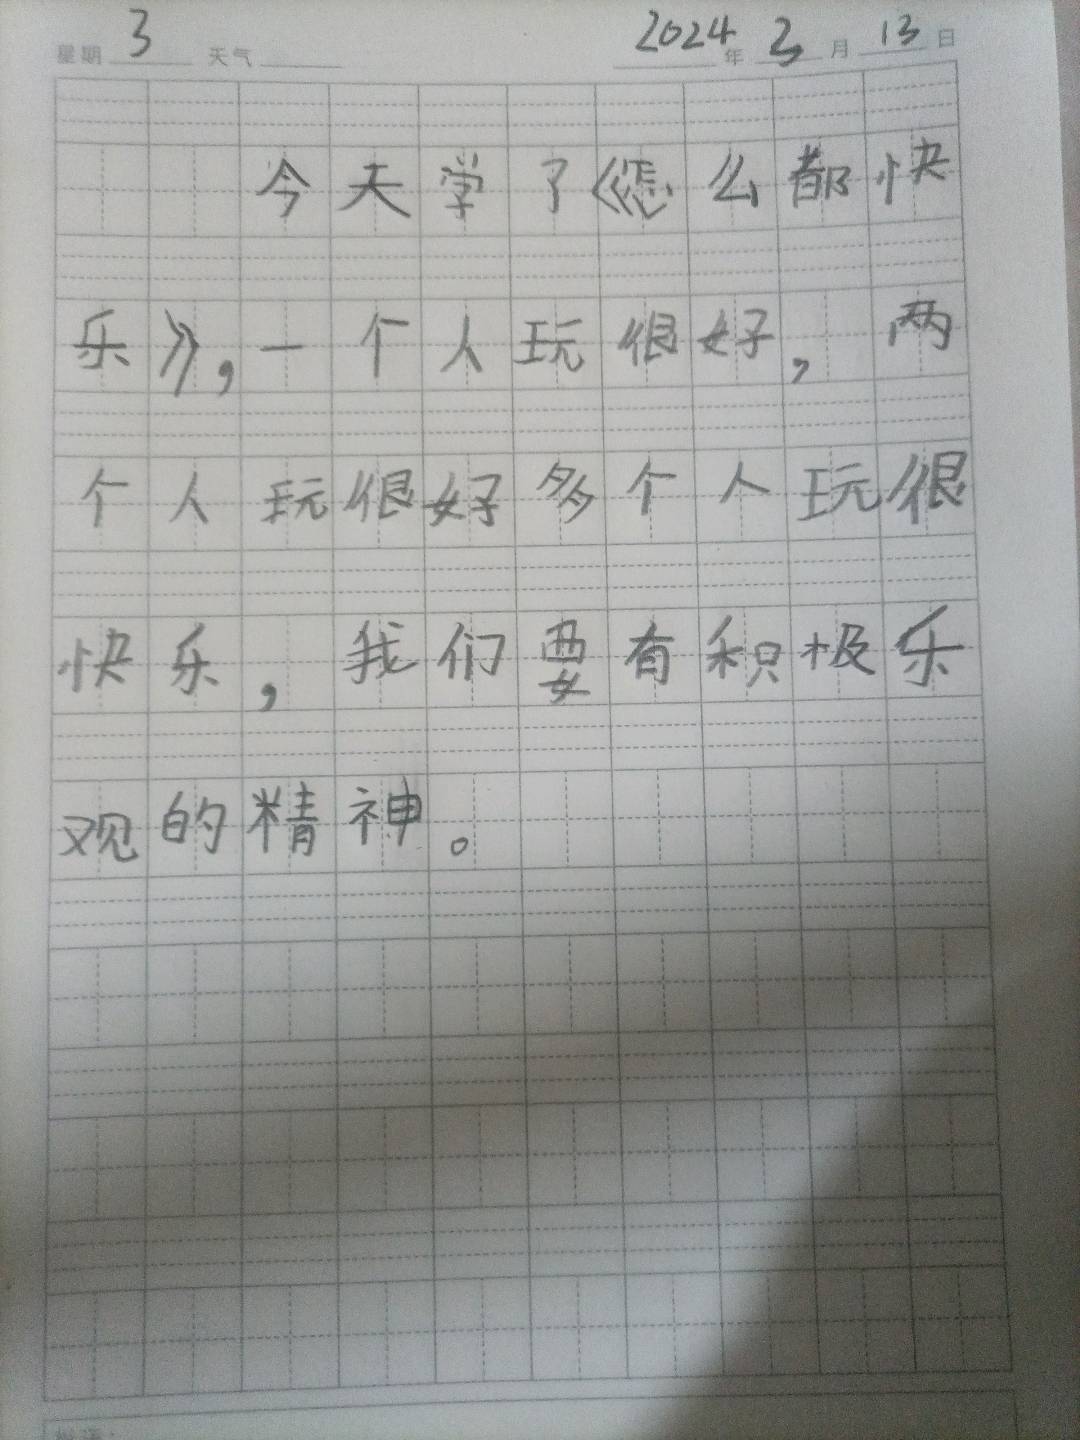 星期 3 天气 2024 年 3 月 13 日
今天学了《怎么都快
乐》,一个人玩很好,两
个人玩很好多个人玩很
快乐,我们要有积极乐
观的精神。